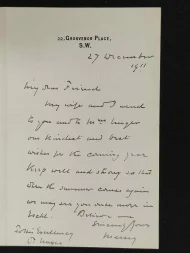 20, GROSVENOR PLACE,
S.W.
27 December
1911
My dear Friend
My wife and I send
to you and to Mrs Unger
our kindest and best
wishes for the coming year
Keep well and strong so that
when the summer comes again
we may see you once more in
Believe me
sincerely yours